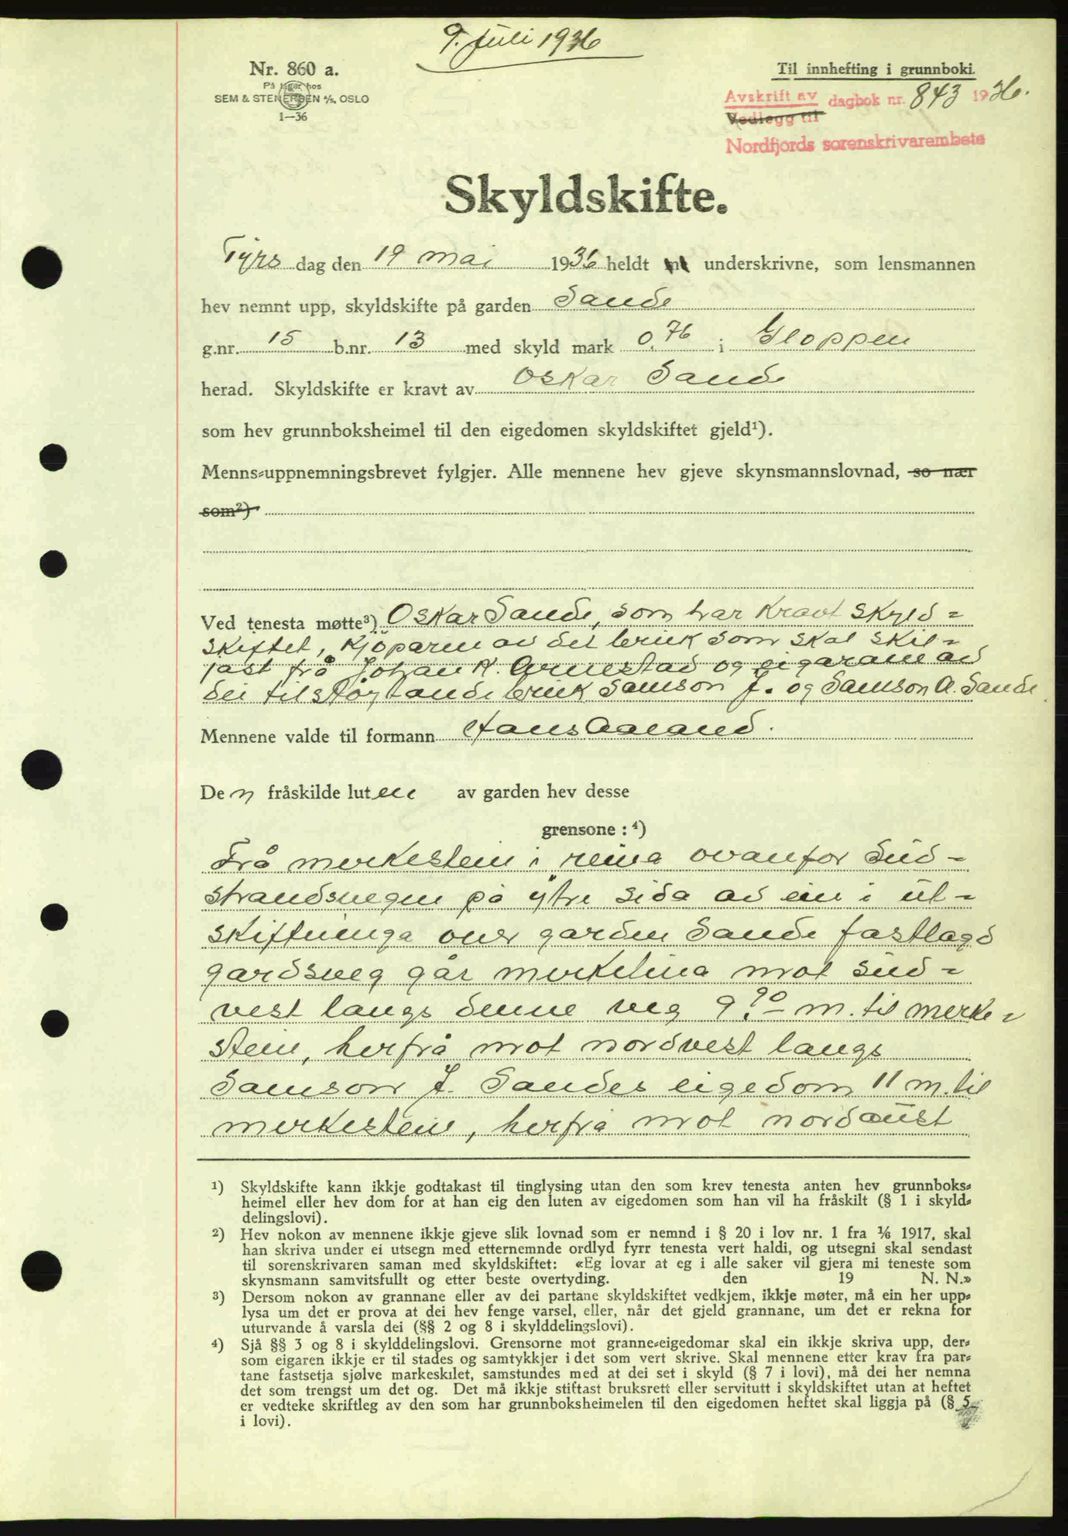 9. juli 1936
Nr. 860 a.
På lager hos
SEM & STENERSEN A/S, OSLO
1—36
Til innhefting i grunnboki.
Avskrift av dagbok nr. 843 1936.
Vedlegg til
Nordfjords sorenskrivarembete
Skyldskifte.
Tyrs dag den 19 mai 1936 heldt underskrivne, som lensmannen
hev nemnt upp, skyldskifte på garden Sande
g.nr. 15 b.nr. 13 med skyld mark 0,76 i Gloppen
herad. Skyldskifte er kravt av Oskar Sande
som hev grunnboksheimel til den eigedomen skyldskiftet gjeld¹).
Menns-uppnemningsbrevet fylgjer. Alle mennene hev gjeve skynsmannslovnad, so nær
som²)
Ved tenesta møtte³) Oskar Sande, som har kravt skyld=
skiftet, kjöparen av det bruk som skal skil=
jast frå Johan K. Arnestad og eigarane av
dei tilstøytande bruk Samson J. og Samson A. Sande
Mennene valde til formann Hans Aaland.
De n fråskilde luten av garden hev desse
grensone : ⁴)
Frå merkestein i reina ovanfor Sud=
strandsvegen på ytre sida av ein i ut=
skiftninga over garden Sande fastlagd
gardsveg går merkelina mot sud=
vest langs denne veg 9.90 m. til merke=
stein, herfrå mot nordvest langs
Samson J. Sandes eigedom 11 m. til
merkestein, herfrå mot nordaust
¹) Skyldskifte kann ikkje godtakast til tinglysing utan den som krev tenesta anten hev grunnboks-
heimel eller hev dom for at han eig den luten av eigedomen som han vil ha fråskilt (§ 1 i skyld-
delingslovi).
²) Hev nokon av mennene ikkje gjeve slik lovnad som er nemnd i § 20 i lov nr. 1 fra 1/6 1917, skal
han skriva under ei utsegn med etternemnde ordlyd fyrr tenesta vert haldi, og utsegni skal sendast
til sorenskrivaren saman med skyldskiftet: «Eg lovar at eg i alle saker vil gjera mi teneste som
skynsmann samvitsfullt og etter beste overtyding. den 19 N. N.»
³) Dersom nokon av grannane eller av dei partane skyldskiftet vedkjem, ikkje møter, må ein her upp-
lysa um det er prova at dei hev fenge varsel, eller, når det gjeld grannane, um det er rekna for
uturvande å varsla dei (§§ 2 og 8 i skylddelingslovi).
⁴) Sjå §§ 3 og 8 i skylddelingslovi. Grensorne mot granne-eigedomar skal ein ikkje skriva upp, der-
som eigaren ikkje er til stades og samtykkjer i det som vert skrive. Skal mennene etter krav fra par-
tane fastsetja sjølve markeskilet, samstundes med at dei set i skyld (§ 7 i lovi), må dei her nemna
det som trengst um det og. Det må ikkje stiftast bruksrett eller servitutt i skyldskiftet utan at heftet
er vedteke skriftleg av den som har grunnboksheimelen til den eigedomen heftet skal liggja på (§ 5
i lovi).